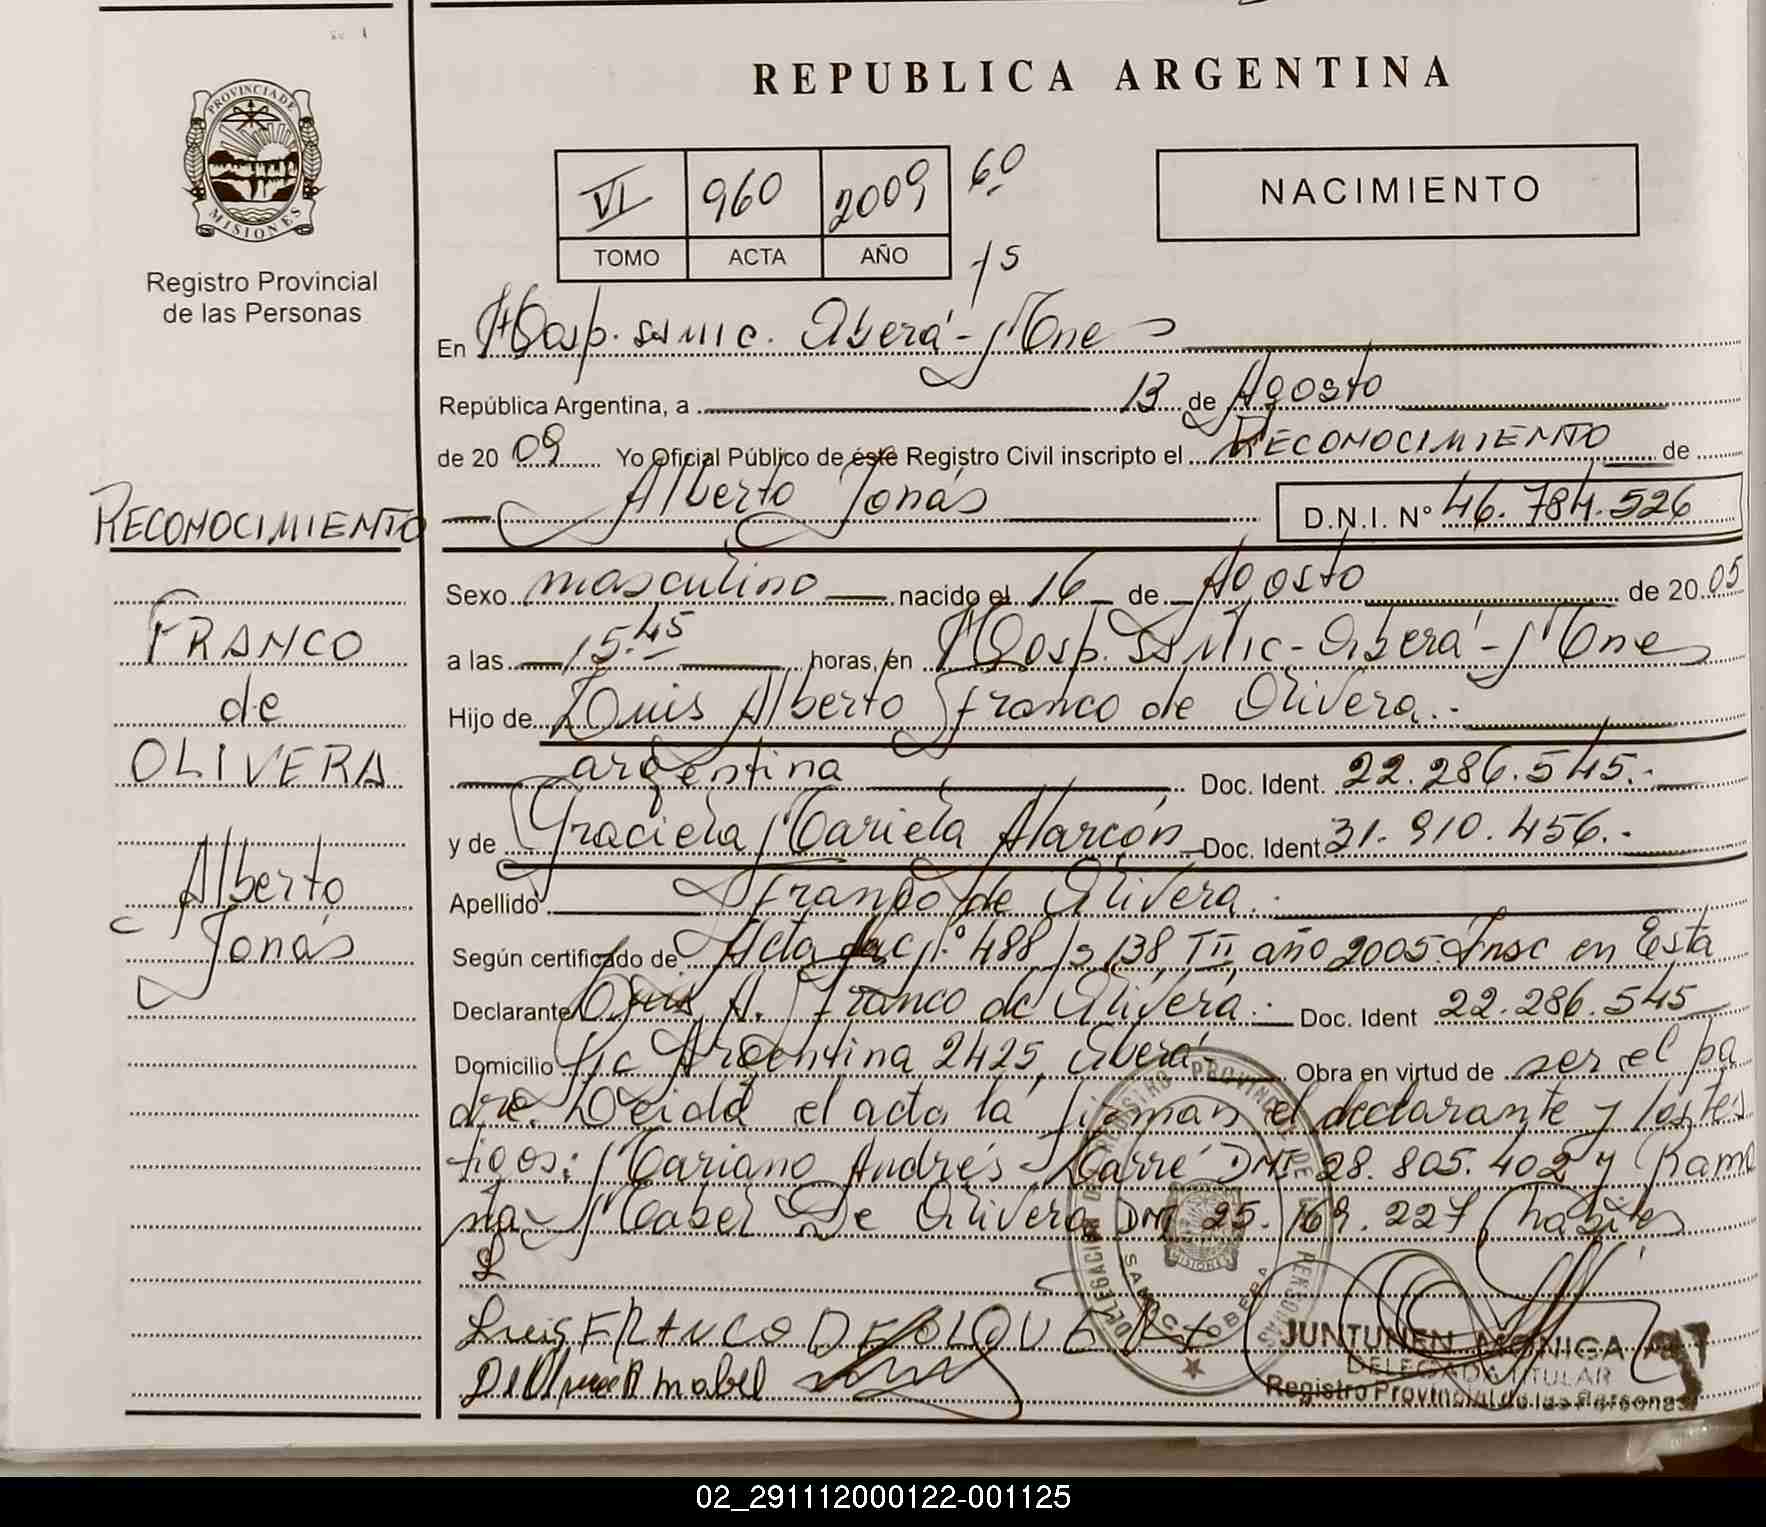 REPUBLICA ARGENTINA
PROVINCIA DE
MISIONES
Registro Provincial
de las Personas
VI 960 2009 60
TOMO ACTA AÑO 15
NACIMIENTO
En Hosp. SAMIC. Oberá-Mnes
República Argentina, a 13 de Agosto
de 20 09 Yo Oficial Público de éste Registro Civil inscripto el RECONOCIMIENTO de
Alberto Jonás D.N.I. Nº 46.784.526
RECONOCIMIENTO
FRANCO
de
OLIVERA
Alberto
Jonás
Sexo masculino nacido el 16 de Agosto de 20 05
a las 15.45 horas, en Hosp. SAMIC-Oberá-Mnes
Hijo de Luis Alberto Franco de Olivera.-
argentina Doc. Ident. 22.286.545.-
y de Graciela Mariela Alarcón Doc. Ident. 31.910.456.-
Apellido Franco de Olivera.-
Según certificado de Acta nº 488 Fs 138 TII año 2005. Insc en Esta
Declarante Luis A. Franco de Olivera.- Doc. Ident 22.286.545
Domicilio Argentina 2425, Oberá- Obra en virtud de ser el pa
dre. Leida el acta la firman el declarante y los tes
tigos: Mariano Andrés Larré DNI 28.805.402 y Ramo
na Mabel De Olivera DNI 25.169.227 habiles
Luis FRANCO DE OLIVERA
De Olivera R mabel
DELEGACION DEL REGISTRO PROVINCIAL DE LAS PERSONAS
SAMIC OBERA
MISIONES
JUNTUNEN MONICA
DELEGADA TITULAR
Registro Provincial de las Personas
02_291112000122-001125